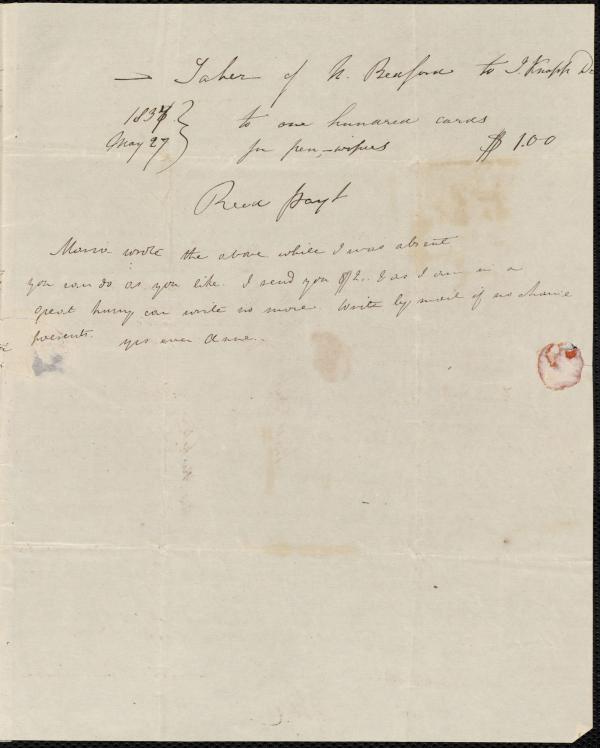 — Taber of N. Bedford to I. Knapp Dr
1837 } to one hundred cards
May 27 for pen-wipers $ 1.00
Recd Payt
Maria wrote the above while I was absent
you can do as you like. I send you $2.. & as I am in a
great hurry can write no more. Write by mail if no chance
presents. yrs ever Anne..